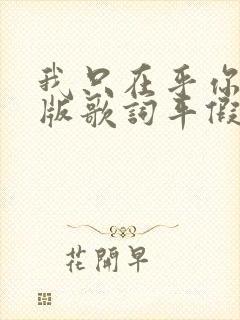 我只在乎你
版歌詞年假
花開早